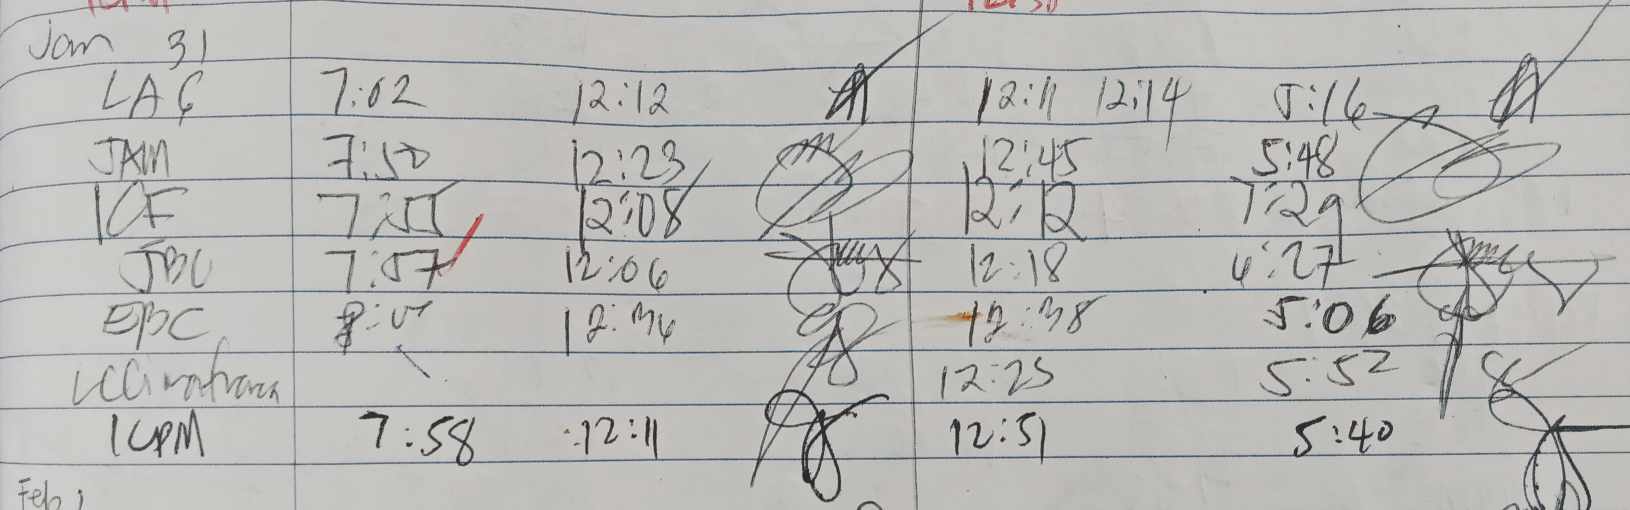 Jan 31
LAG 7:02 12:12 12:11 12:14 5:16
JAM 7:50 12:23 12:45 5:48
ICF 7:55 12:08 12:12 7:29
JBC 7:57 12:06 12:18 4:27
EBC 12:34 12:38 5:06
12:25 5:52
ICPM 7:58 12:11 12:51 5:40
Feb 1